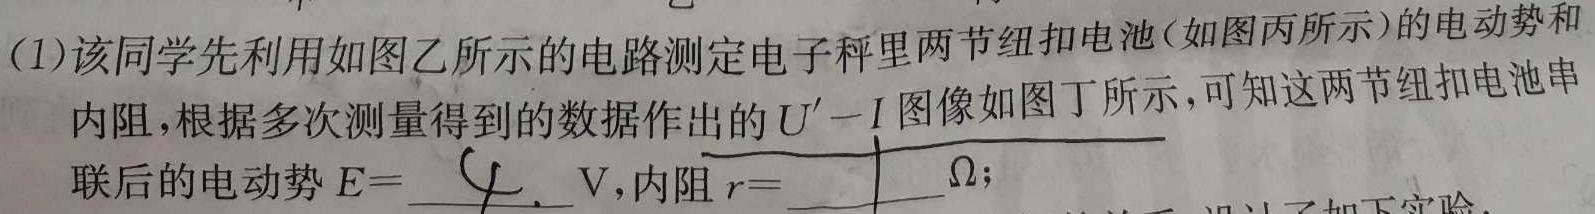 (1)该同学先利用如图乙所示的电路测定电子秤里两节纽扣电池(如图丙所示)的电动势和
内阻,根据多次测量得到的数据作出的U′-I图像如图丁所示,可知这两节纽扣电池串
联后的电动势E= 4. V,内阻r= Ω;
设计了如下实验.